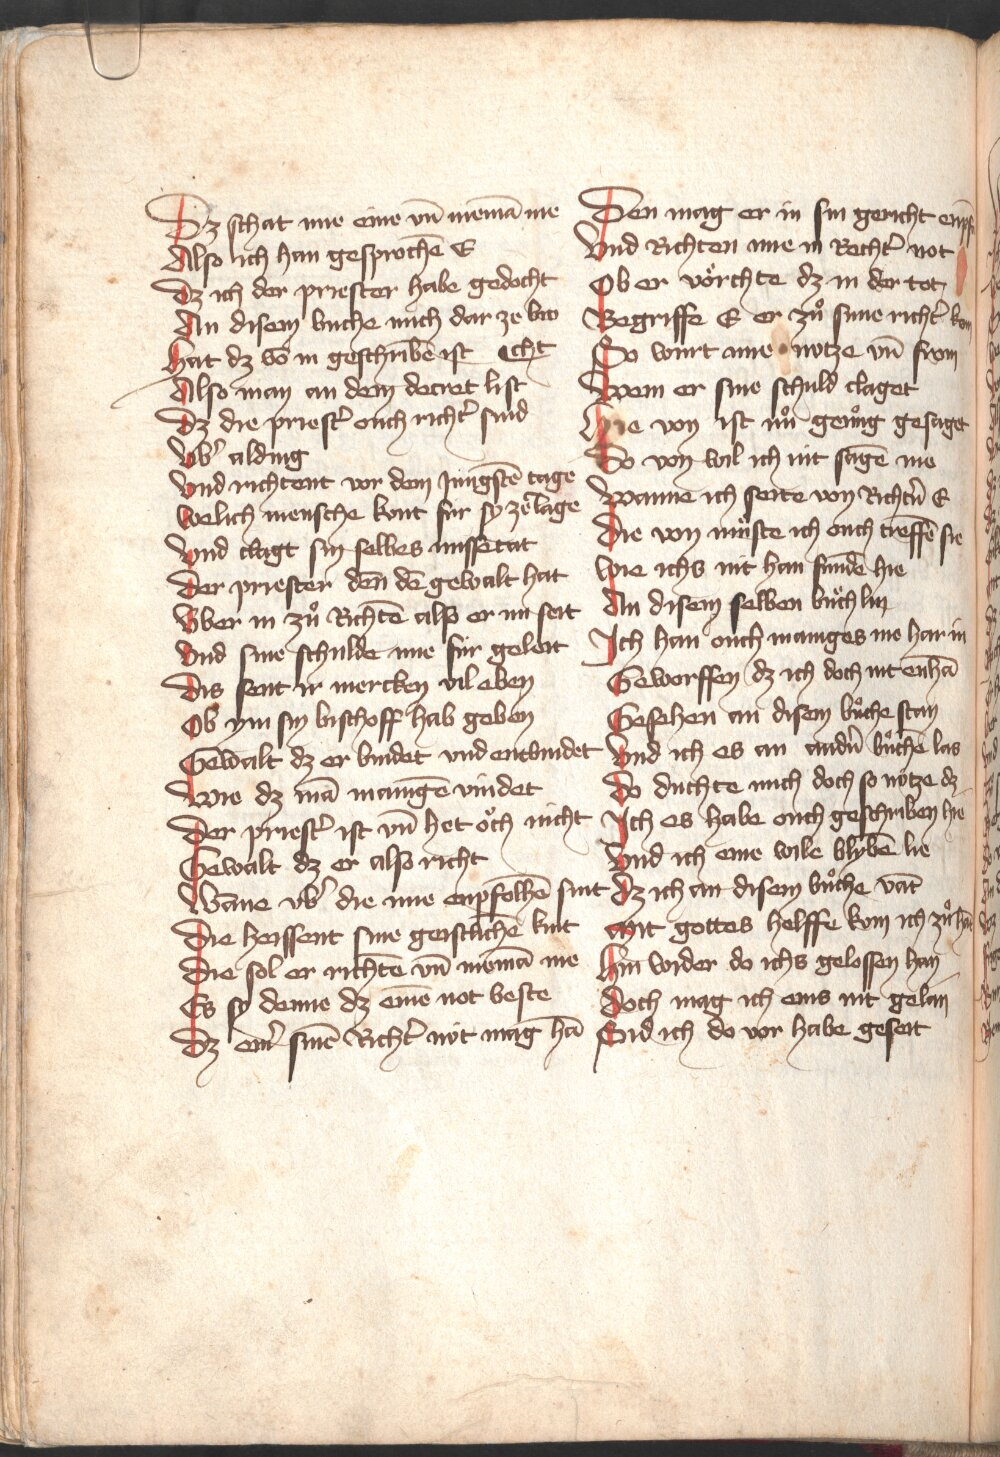 Dz schat ime eime vn̄ niemā me
Also ich han gesprochē E
Dz ich der priester habe gedocht
An disem buche mich dar ze bro
Hat dz vō in geschribē ist cht
Also man an dem decret list
Dz die priestˀ ouch richtˀ sind
Vbˀ alding
Vnd richtent vor dem Jungstē tage
Welich mensche komt für sy zeˀ clage
Vnd clagt sin selbes missetat
Der priester den dē gewalt hat
Vber in zuͦ Richtē also er im seit
Vnd sine schulde ime für geleit
Dis sent ir mercken vil eben
Ob ym sin bischoff hab geben
Gewalt dz er bindet vnd entbindet
Wie dz mā manigē vindet
Der priestˀ ist vn̄ het oͮch nicht
Gewalt dz er also richt
Wāne vbˀ die ime enpfolhē sint
Die heissent sine geistlichē kint
Die sol er richtē vn̄ niemā me
Es sy denne dz eime not beste
Dz einˀ sinē Richtˀ nit mag hā
Den mag er in sin gericht enpf
Vnd Richten ime in Rechtˀ not
Ob er voͤrchte dz in der tot
Begriffe E er zuͦ sime richtˀ kom
So wirt ime nütze vn̄ from
Wem er sine schuld claget
Hie von ist nuͦ genuͦg gesaget
Do von wil ich nit sagē me
Wanne ich seite von Richtˀn E
Die von muͤste ich ouch treffē sie
Wie ichs nit han fundē hie
An disem selben buͤchlin
Ich han ouch maniges me har in
Geworffen dz ich doch nit enhā
Gesehen an disem buͦche stan
Vnd ich es an andˀn buͤchē las
Do duchte mich doch so nütze dz
Ich es habe ouch geschriben hie
Vnd ich eine wile blybē lie
Dz ich an disem buͦche vāt
Mit gottes helffe kom ich zuͦ hāt
Hin wider do ichs gelossen han
Doch mag ich eins nit gelan
Sid ich do vor habe geseit